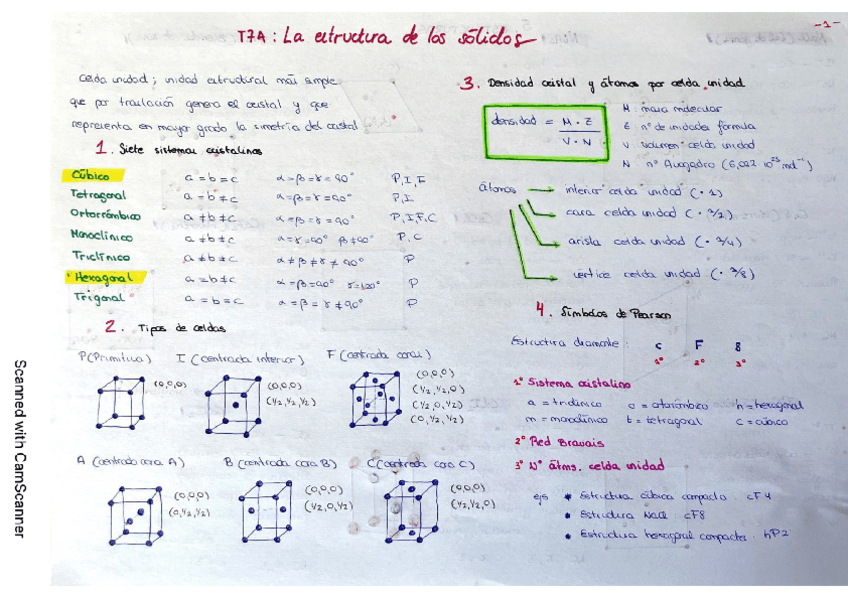 -1-
T7A : La estructura de los sólidos
celda unidad; unidad estructural más simple
que por traslación genera el cristal y que
representa en mayor grado la simetría del cristal
1. Siete sistemas cristalinos
Cúbico a = b = c α = β = γ = 90° P, I, F
Tetragonal a = b ≠ c α = β = γ = 90° P, I
Ortorrómbico a ≠ b ≠ c α = β = γ = 90° P, I, F, C
Monoclínico a ≠ b ≠ c α = γ = 90° β ≠ 90° P, C
Triclínico a ≠ b ≠ c α ≠ β ≠ γ ≠ 90° P
Hexagonal a = b ≠ c α = β = 90° γ = 120° P
Trigonal a = b = c α = β = γ ≠ 90° P
2. Tipos de celdas
P (Primitiva) I (centrada interior) F (centrada caras)
(0,0,0)
(0,0,0)
(1/2, 1/2, 1/2)
(0,0,0)
(1/2, 1/2, 0)
(1/2, 0, 1/2)
(0, 1/2, 1/2)
A (centrado cara A) B (centrada cara B) C (centrada cara C)
(0,0,0)
(0, 1/2, 1/2)
(0,0,0)
(1/2, 0, 1/2)
(0,0,0)
(1/2, 1/2, 0)
3. Densidad cristal y átomos por celda unidad
densidad = M · Z / V · N
M : masa molecular
Z nº de unidades fórmula
V volumen celda unidad
N nº Avogadro (6,022 · 10²³ mol⁻¹)
átomos → interior celda unidad (· 1)
cara celda unidad (· 1/2)
arista celda unidad (· 1/4)
vértice celda unidad (· 1/8)
4. Símbolos de Pearson
Estructura diamante : c F 8
1º 2º 3º
1º Sistema cristalino
a = triclínico o = ortorrómbico h = hexagonal
m = monoclínico t = tetragonal c = cúbico
2º Red Bravais
3º Nº átms. celda unidad
ejs * Estructura cúbica compacta : cF4
• Estructura NaCl : cF8
• Estructura hexagonal compacta : hP2
Scanned with CamScanner